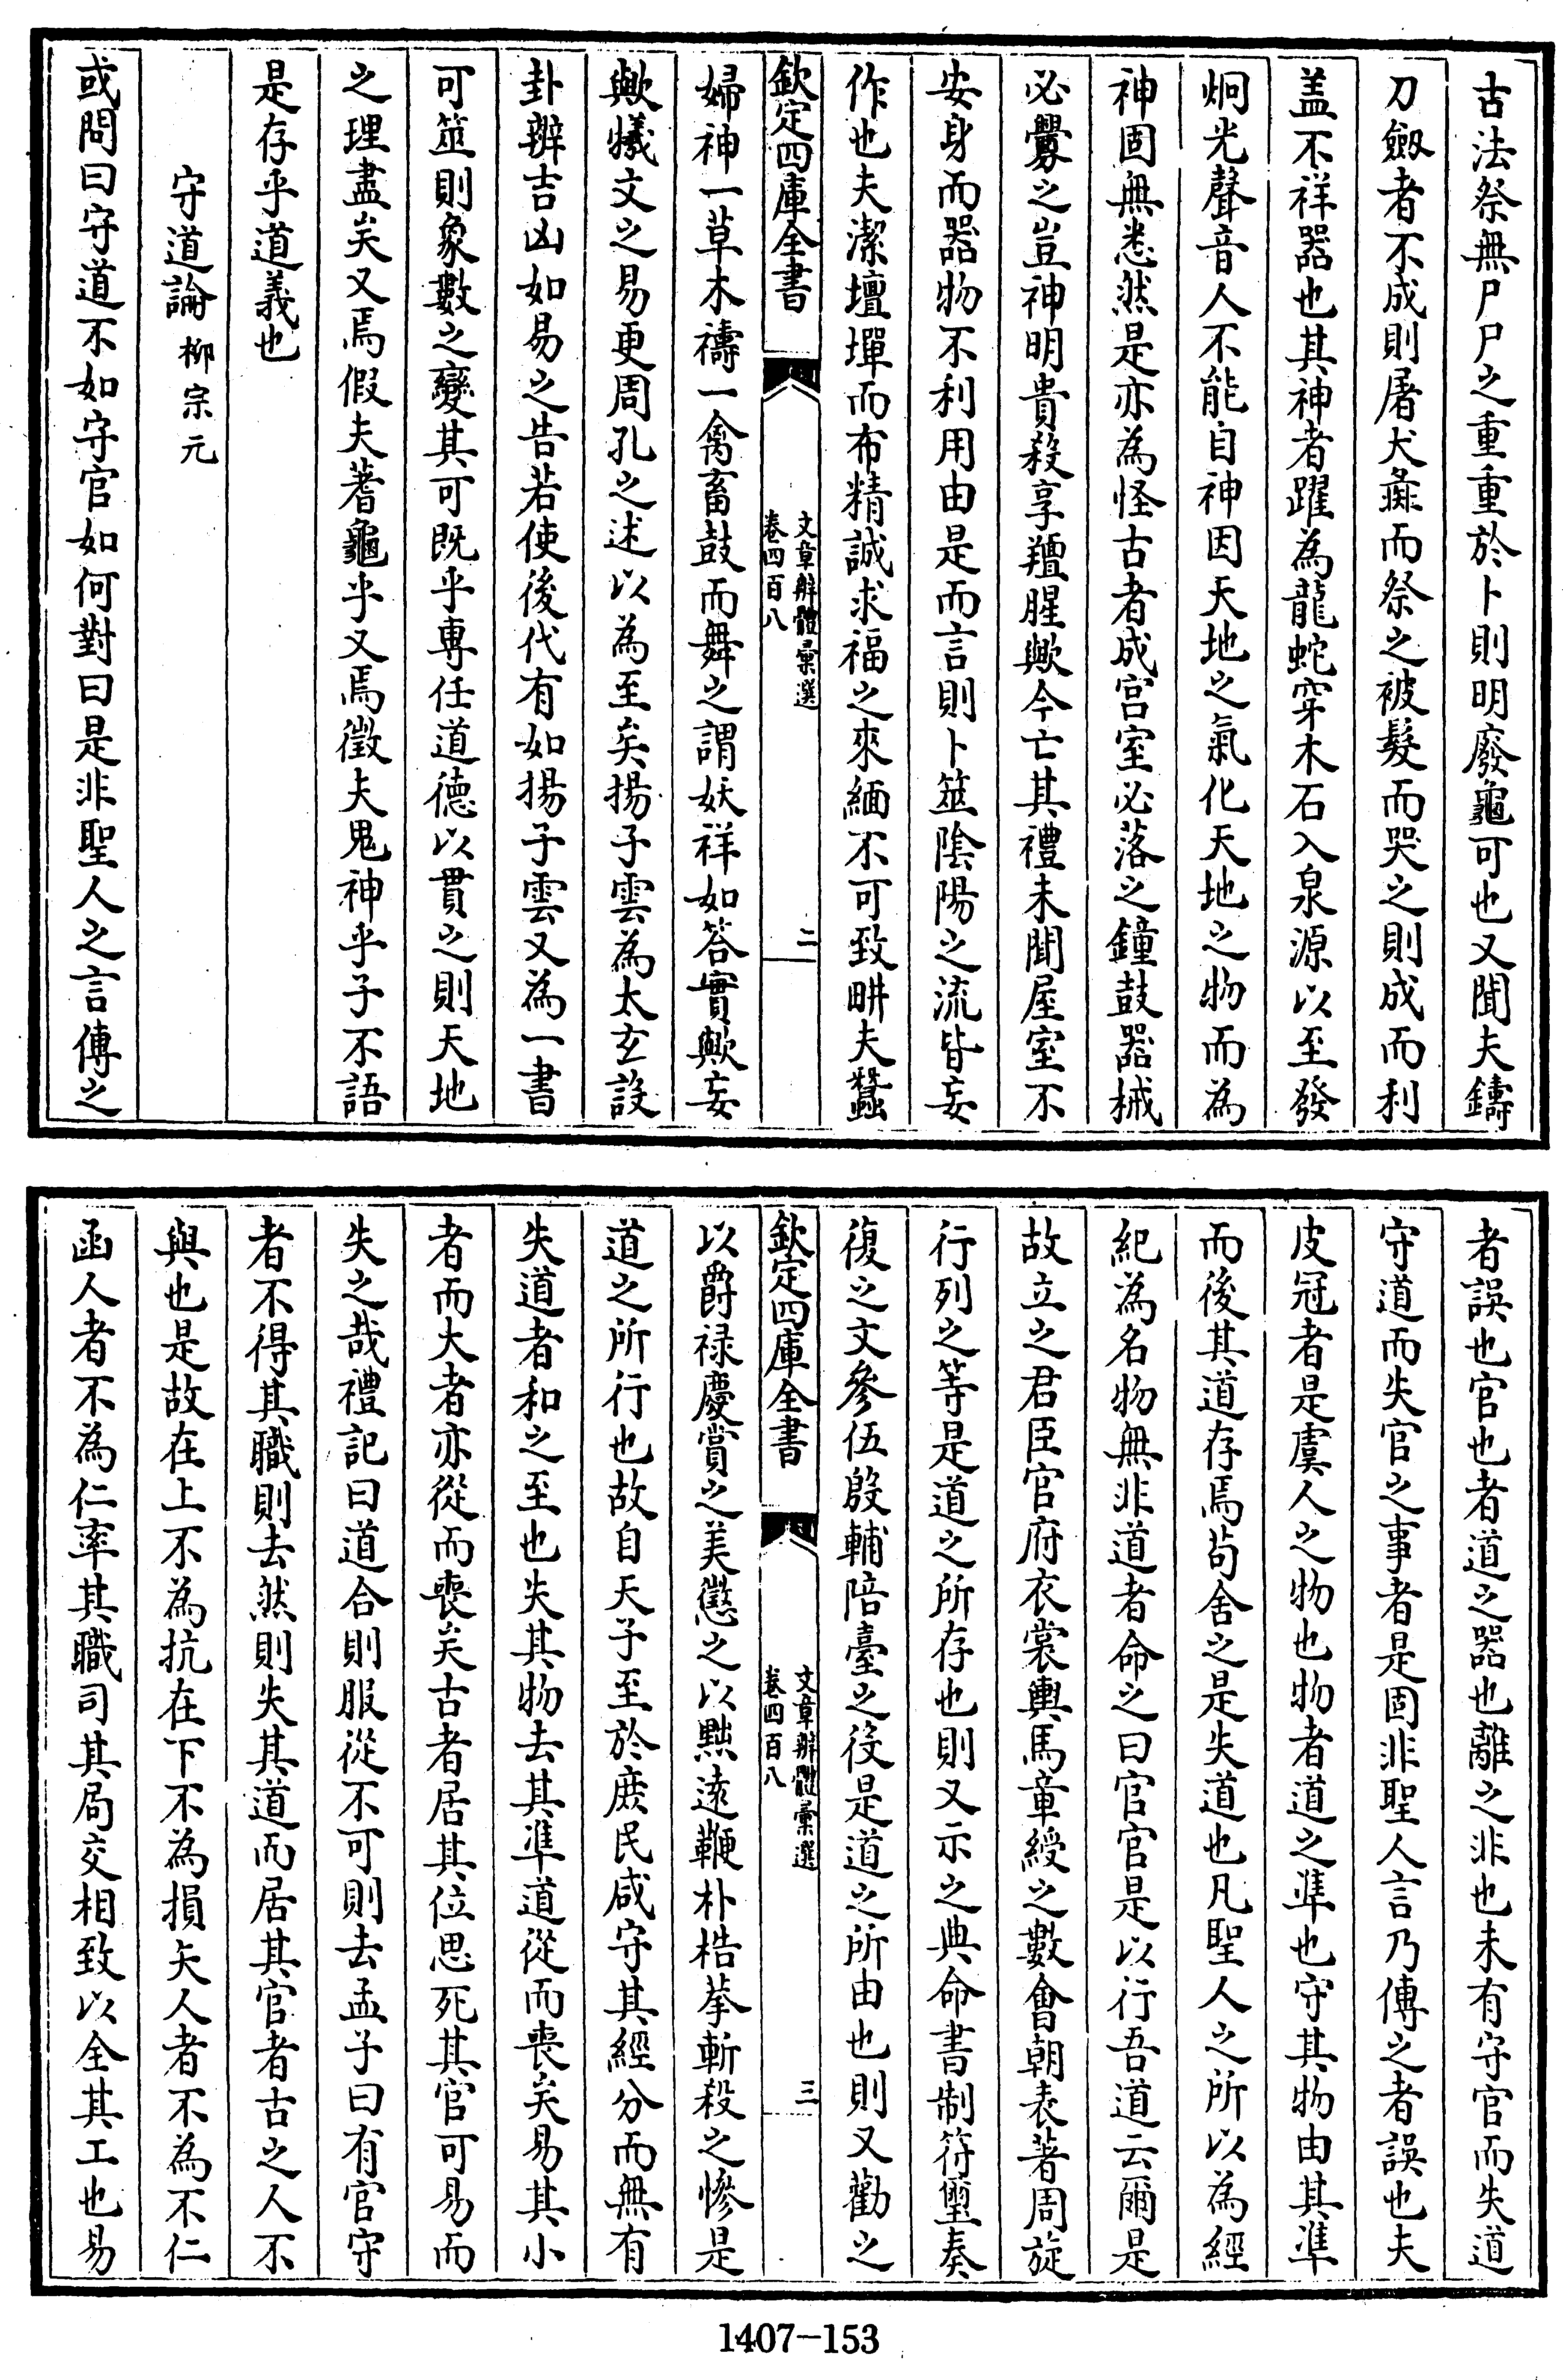 古法祭無尸尸之重重於卜則明廢龜可也又聞夫鑄
刀劔者不成則屠犬彘而祭之被髮而哭之則成而利
盖不祥器也其神者躍為龍蛇穿木石入泉源以至發
炯光聲音人不能自神因天地之氣化天地之物而為
神固無悉然是亦為怪古者成宫室必落之鐘鼓器械
必釁之豈神明貴殺享羶腥歟今亡其禮未聞屋室不
安身而器物不利用由是而言則卜筮陰陽之流皆妄
作也夫潔壇墠而布精誠求福之來緬不可致畊夫蠶
欽定四庫全書
文章辨體彙選
卷四百八
二
婦神一草木禱一禽畜鼓而舞之謂妖祥如答實歟妄
歟犧文之易更周孔之述以為至矣揚子雲為太玄設
卦辨吉凶如易之告若使後代有如揚子雲又為一書
可筮則象數之變其可既乎專任道德以貫之則天地
之理盡矣又焉假夫蓍龜乎又焉徵夫鬼神乎子不語
是存乎道義也
守道論 柳宗元
或問曰守道不如守官如何對曰是非聖人之言傳之
者誤也官也者道之器也離之非也未有守官而失道
守道而失官之事者是固非聖人言乃傳之者誤也夫
皮冠者是虞人之物也物者道之準也守其物由其準
而後其道存焉茍舍之是失道也凡聖人之所以為經
紀為名物無非道者命之曰官官是以行吾道云爾是
故立之君臣官府衣裳輿馬章綬之數會朝表著周旋
行列之等是道之所存也則又示之典命書制符璽奏
復之文參伍殷輔陪臺之役是道之所由也則又勸之
欽定四庫全書
文章辨體彙選
卷四百八
三
以爵禄慶賞之美懲之以黜逺鞭朴梏拲斬殺之慘是
道之所行也故自天子至於庶民咸守其經分而無有
失道者和之至也失其物去其準道從而喪矣易其小
者而大者亦從而喪矣古者居其位思死其官可易而
失之哉禮記曰道合則服從不可則去孟子曰有官守
者不得其職則去然則失其道而居其官者古之人不
與也是故在上不為抗在下不為損矢人者不為不仁
函人者不為仁率其職司其局交相致以全其工也易
1407-153